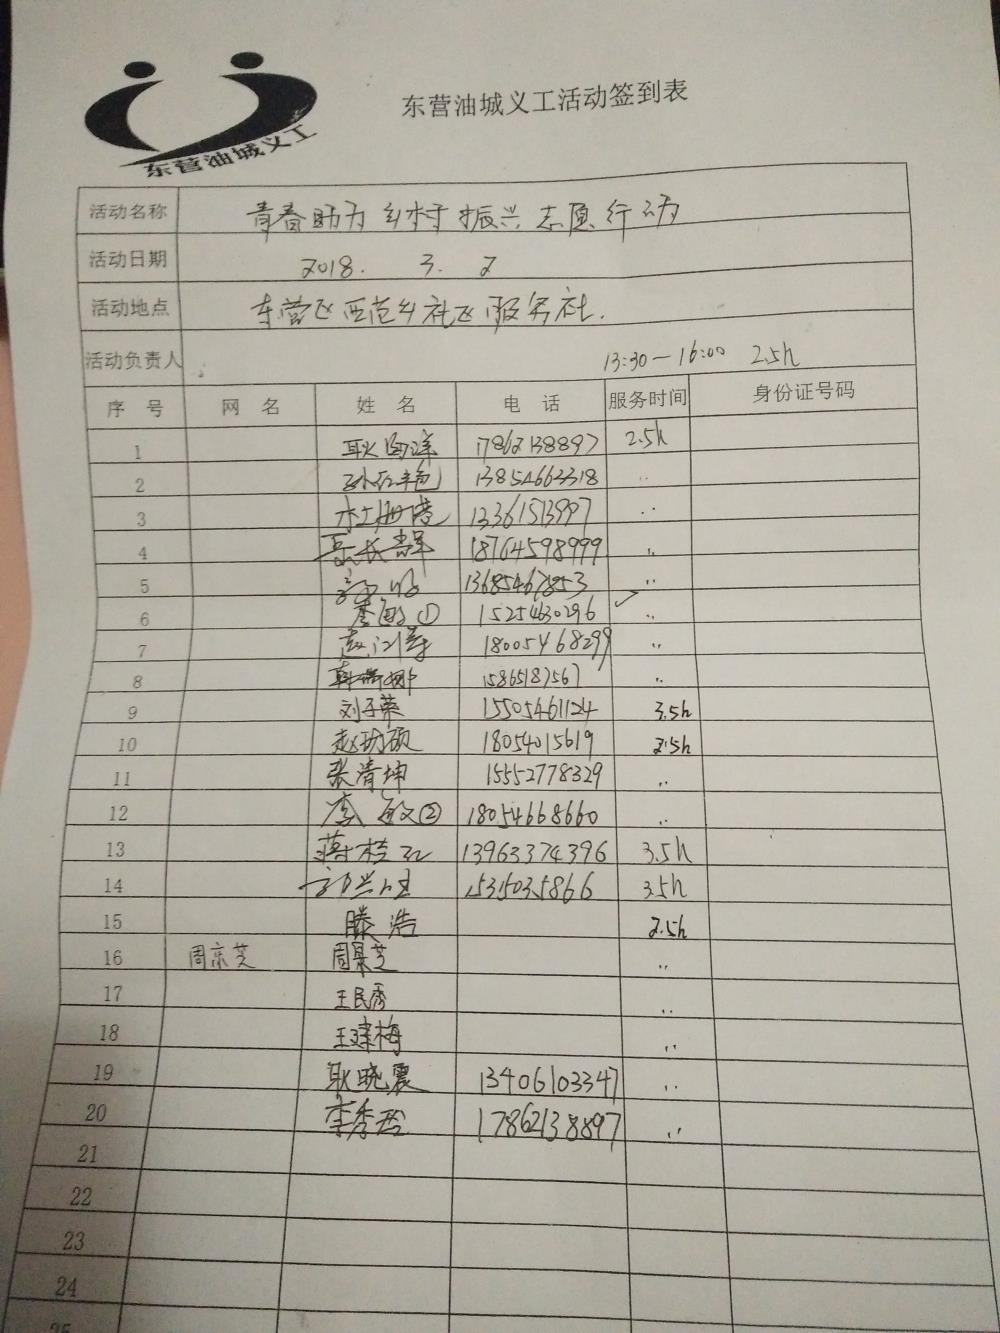 东营油城义工
东营油城义工活动签到表
活动名称 青春助力乡村振兴志愿行动
活动日期 2018. 3. 2
活动地点 东营区西范乡社区服务社.
活动负责人 13:30—16:00 2.5h
序号 网名 姓名 电话 服务时间 身份证号码
1 耿 17862138897 2.5h
2 13854663318 ..
3 杜 13361513997 ..
4 18764598999 ..
5 13685467853 ..
6 李敏① 15254630296 ✓ ..
7 赵 18005468299 ..
8 韩 15865187567 ..
9 刘子荣 15505461124 3.5h
10 赵 硕 18054015619 2.5h
11 张清坤 15552778329 ..
12 李敏② 18054668660 ..
13 蒋桂 13963374396 3.5h
14 15315035866 3.5h
15 滕浩 2.5h
16 周京芝 周景芝 ..
17 王民秀 ..
18 王建梅 ..
19 耿晓震 13406103347 ..
20 李秀 17862138897 ..
21
22
23
24
25